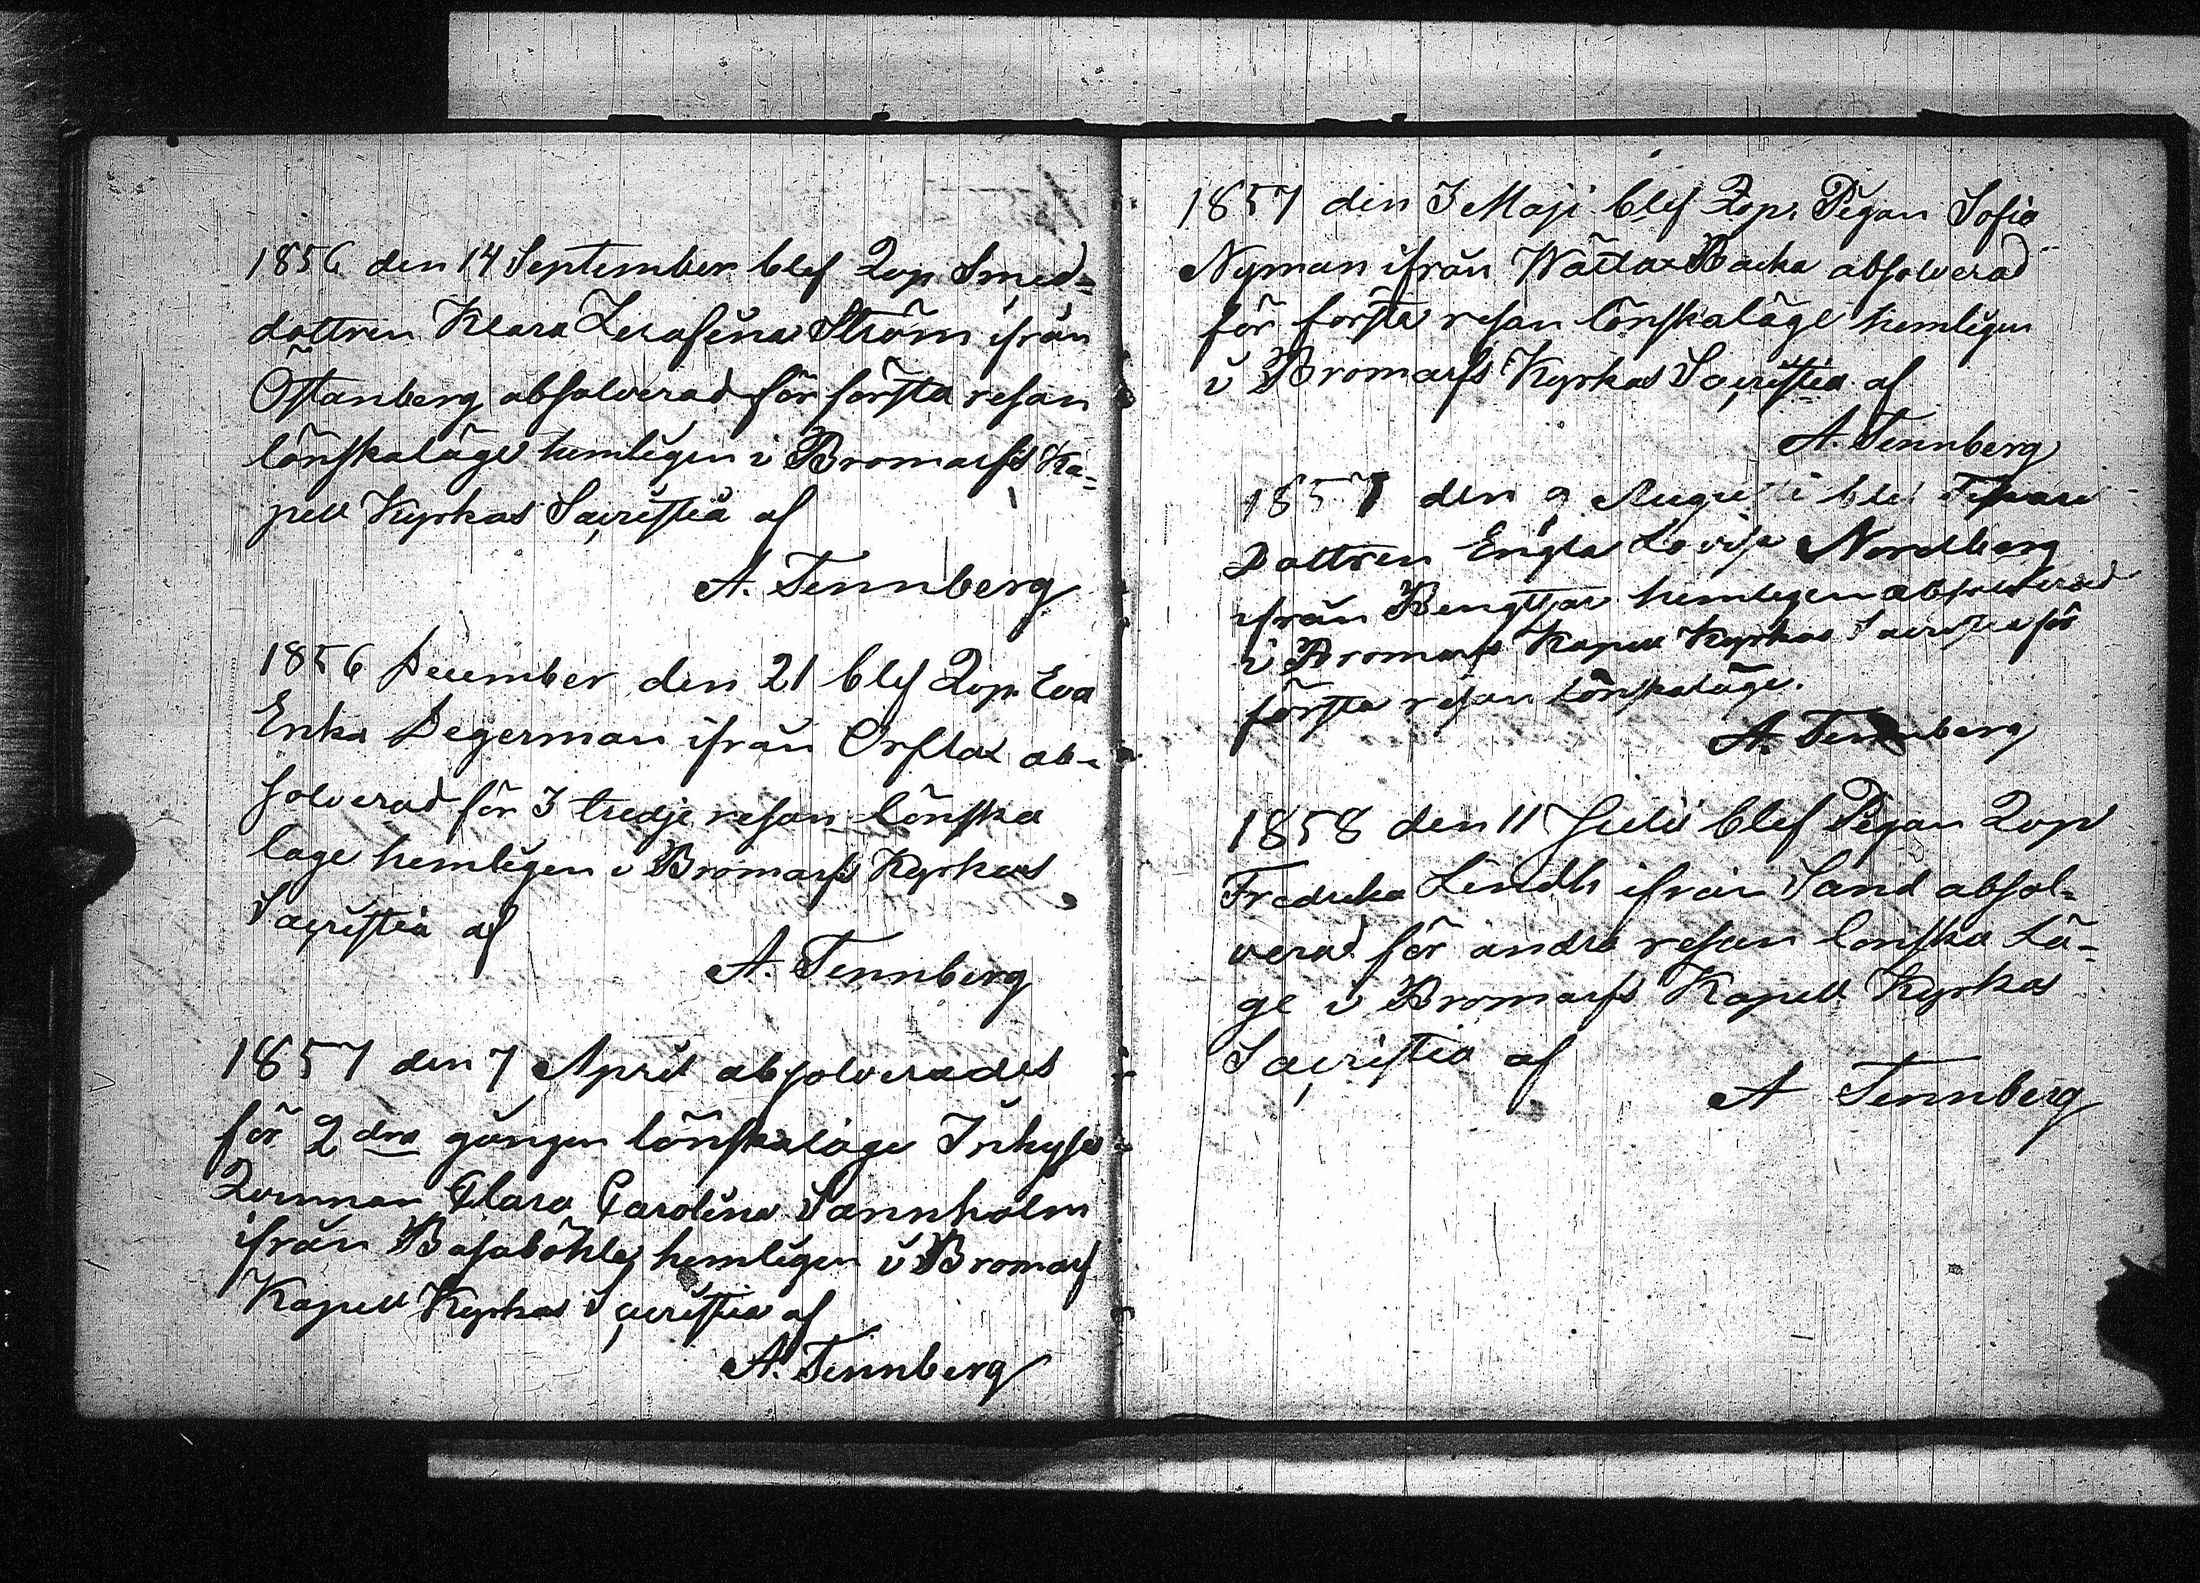 1856 den 14 September blef Qvp Smed=
dottren Klara Serafina Ström ifrån
Östanberg absolverad för första resan
lönskaläge hemligen i Bromarfs Ka=
pell Kyrkas Sacristia af
A. Tennberg
1856 December den 21 blef Qvp. Eva
Erika Degerman ifrån Orslax ab=
solverad för 3 tredje resan lönska
läge hemligen i Bromarfs Kyrkas
Sacristia af
A. Tennberg
1857 den 7 April absolverades
för 2 dra gången lönskaläge Inhyses
Qvinnan Clara Carolina Sannholm
ifrån Basaböhle hemligen i Bromarf
Kapell Kyrkas Sacristia af
A. Tennberg
1857 den 3 Maji blef Qvp. Pigan Sofia
Nyman ifrån Wättlax Backa absolverad
för första resan lönskaläge hemligen
i Bromarfs Kyrkas Sacristia af
A. Tennberg
1857 den 9 Augusti blef
Dottren Engla Lovisa Nordberg
ifrån Bengtsår hemligen absolverad
i Bromarfs Kapell Kyrkas Sacristia för
första resan lönskaläge.
A. Tennberg
1858 den 11 Julii blef Pigan Qvp
Fredrika Lindh ifrån Sand absol=
verad för andra resan lönska lä=
ge i Bromarfs Kapell Kyrkas
Sacristia af
A Tennberg